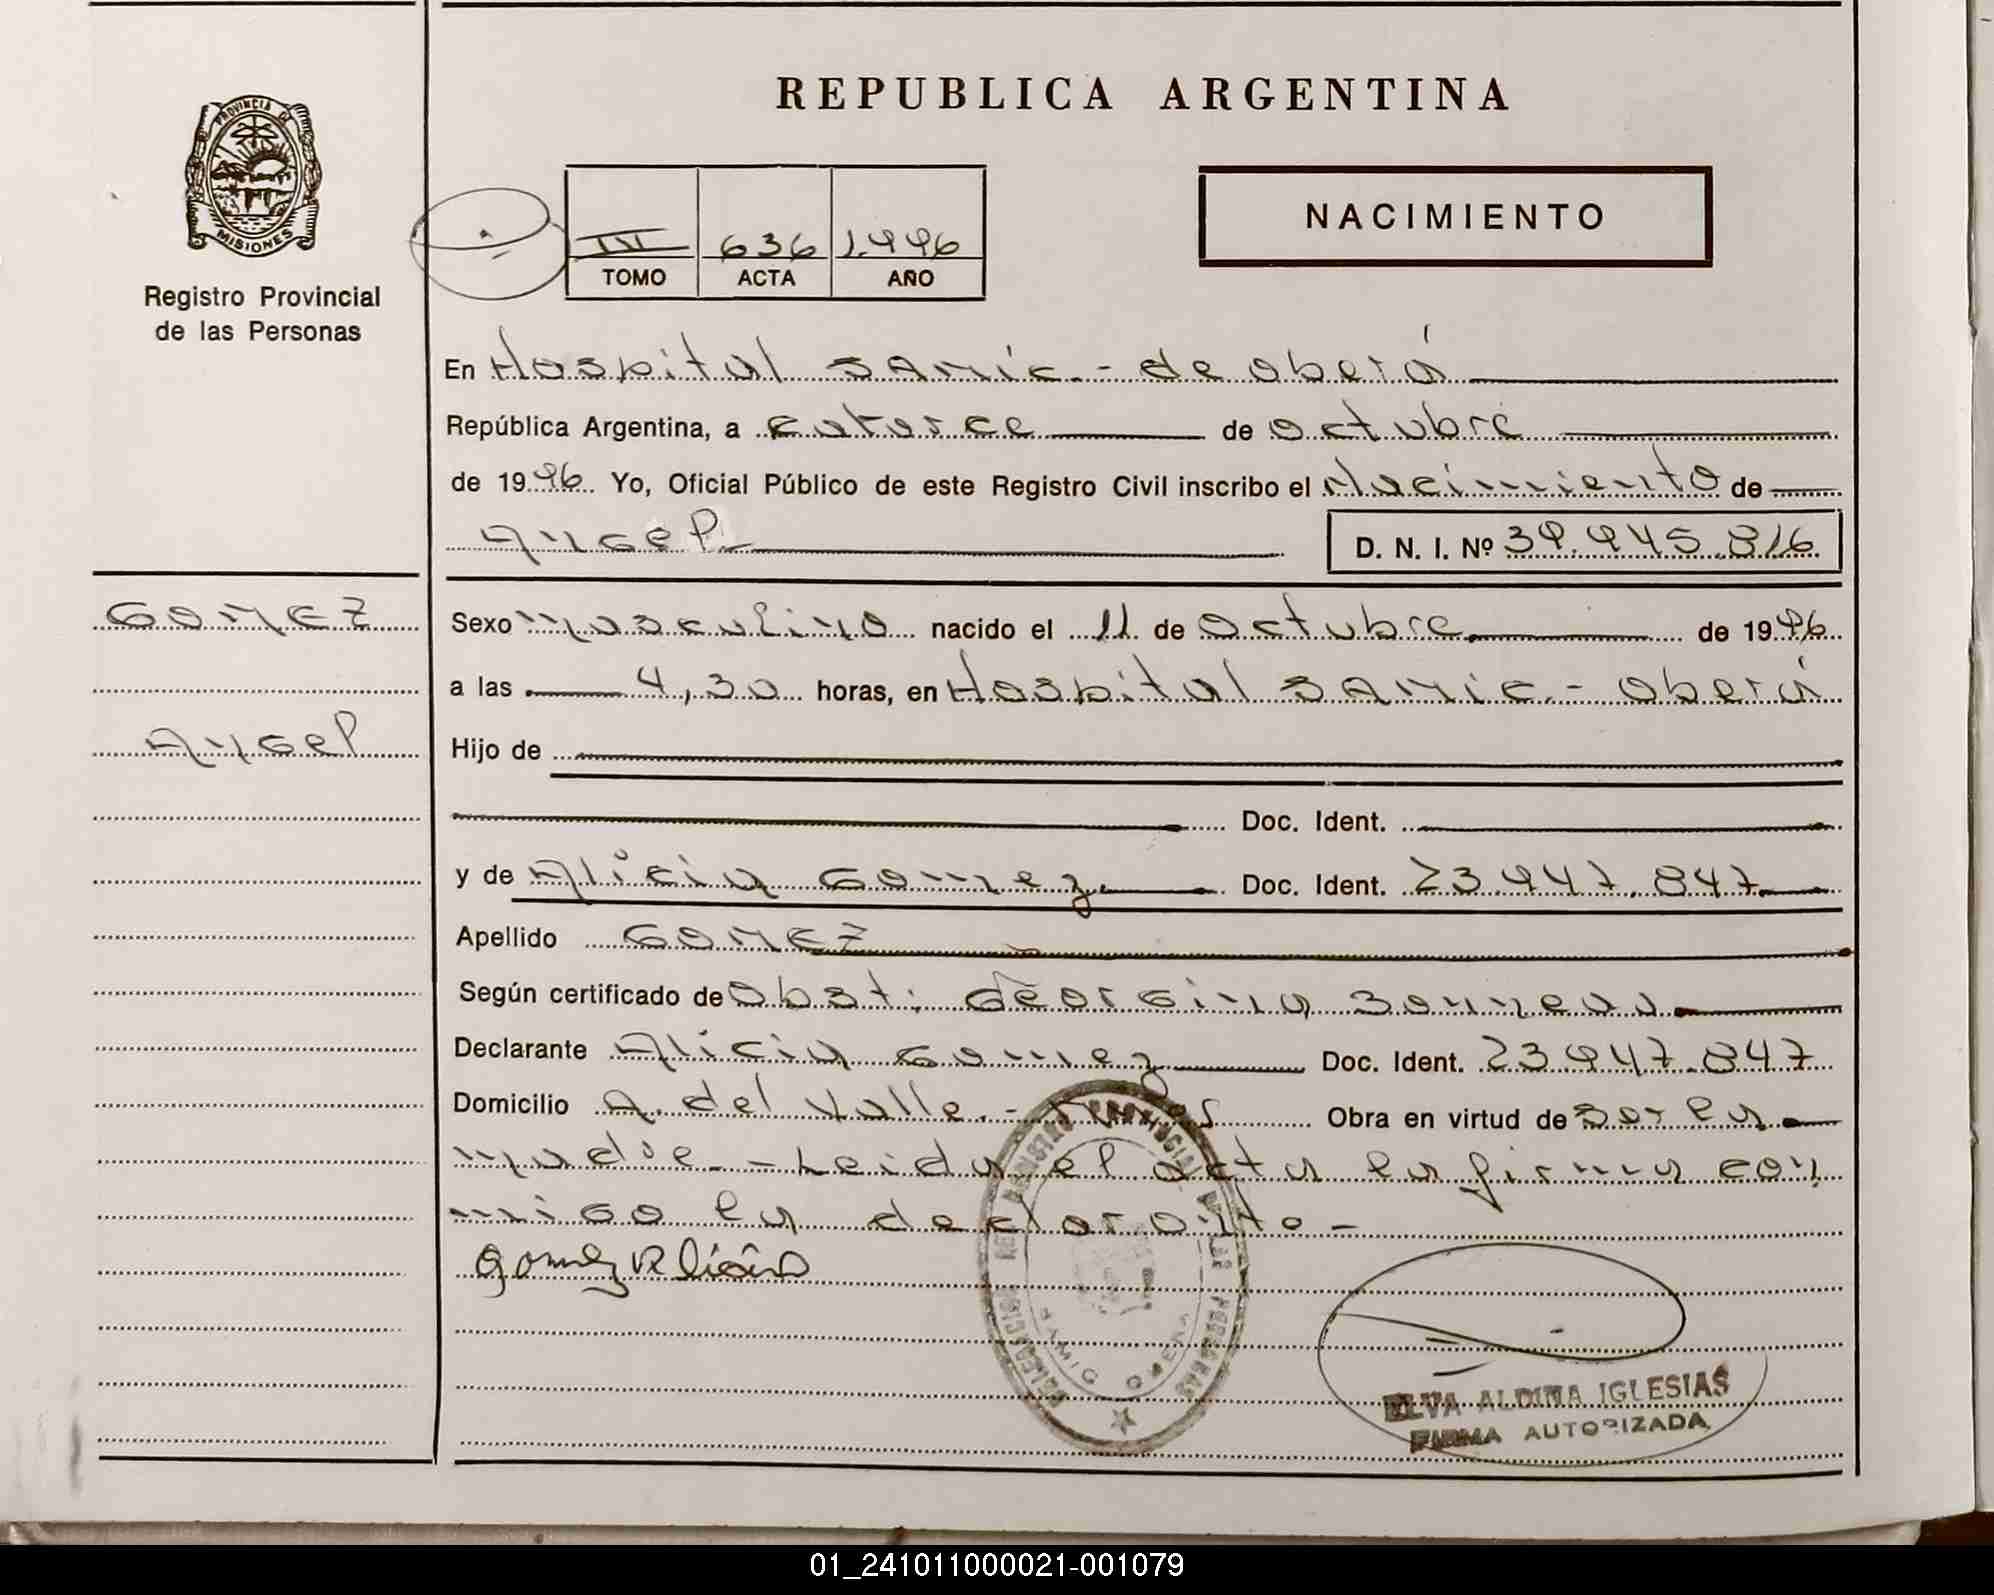 PROVINCIA DE
MISIONES
Registro Provincial
de las Personas
REPUBLICA ARGENTINA
NACIMIENTO
III 636 1.996
TOMO ACTA AÑO
En Hospital SAMIC.- de Oberá
República Argentina, a catorce de octubre
de 1996 Yo, Oficial Público de este Registro Civil inscribo el Nacimiento de
Angel.- D. N. I. Nº 39.945.816
GOMEZ
Angel
Sexo masculino nacido el 11 de Octubre de 1996
a las 4,30 horas, en Hospital SAMIC.- Oberá
Hijo de
Doc. Ident.
y de Alicia Gomez. Doc. Ident. 23.947.847
Apellido GOMEZ
Según certificado de Obst: Georgina
Declarante Alicia Gomez Doc. Ident. 23.947.847
Domicilio A. del Valle.- Obra en virtud de ser la
madre.- Leida el acta la firma con
migo la declarante.-
Gomez Alicia
REGISTRO PROVINCIAL DE LAS PERSONAS
SAMIC OBERA
ELVA ALDINA IGLESIAS
FIRMA AUTORIZADA
01_241011000021-001079